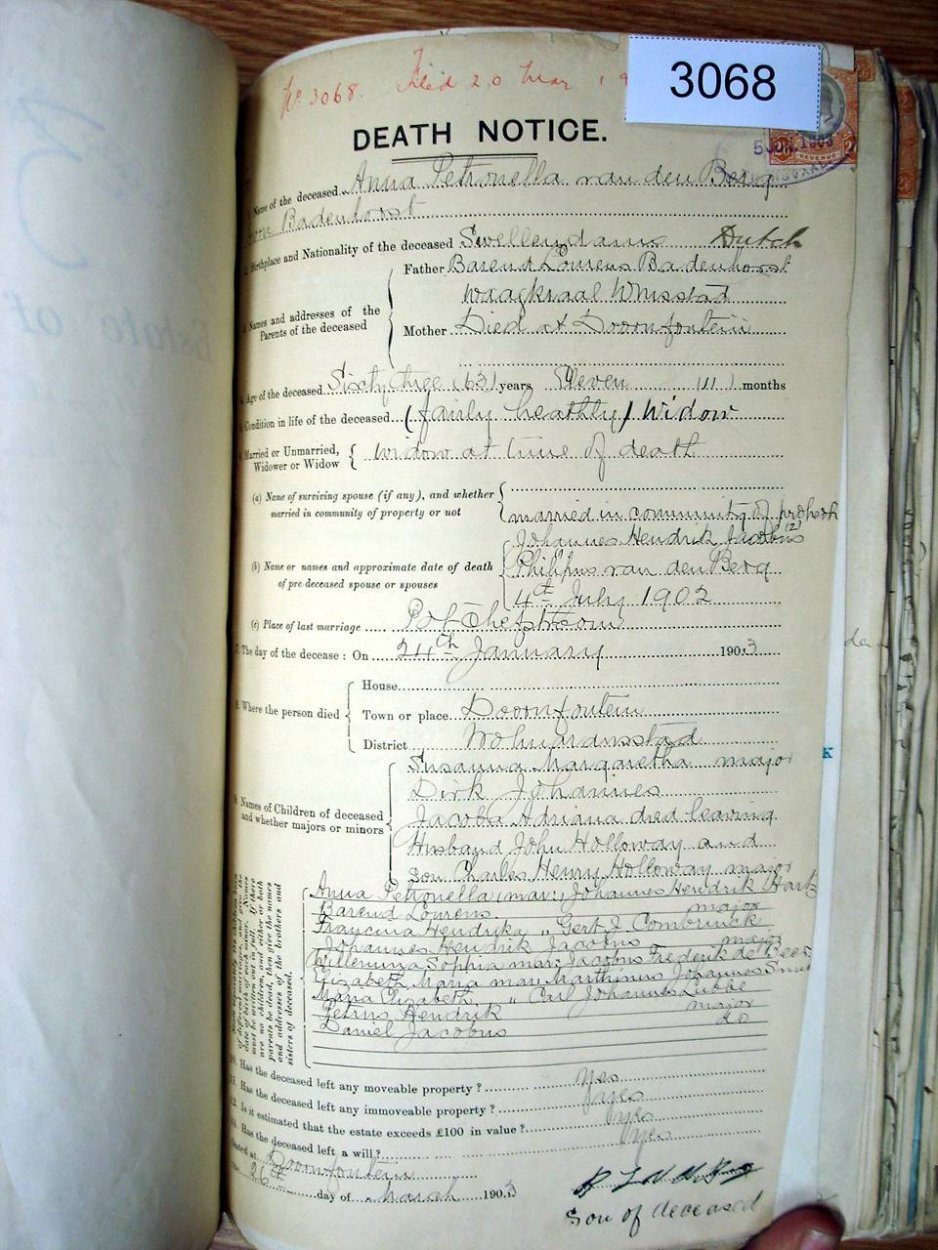 No 3068. Filed 20 Mar 19
3068
5 JUN. 1903
REVENUE
DEATH NOTICE.
Name of the deceased Anna Petronella van den Berg
born Badenhorst
Birthplace and Nationality of the deceased Swellendam Dutch
Names and addresses of the Parents of the deceased
Father Barend Lourens Badenhorst
Waagkraal Wmsstad
Mother Died at Doornfontein
Age of the deceased Sixty three (63) years Eleven (11) months
Condition in life of the deceased (fairly heathly) Widow
Married or Unmarried, Widower or Widow widow at time of death
(a) Name of surviving spouse (if any), and whether married in community of property or not
married in community of
Johannes Hendrik Jacobus (2)
(b) Name or names and approximate date of death of pre-deceased spouse or spouses
Philipus van den Berg
4th July 1902
(c) Place of last marriage Potchefstroom
The day of the decease: On 24th January 1903
Where the person died
House
Town or place Doornfontein
District Wolmaransstad
Names of Children of deceased and whether majors or minors
Susanna Margaretha major
Dirk Johannes
Jacoba Adriana died leaving
Husband John Holloway and
son Charles Henry Holloway major
Anna Petronella mar: Johannes Hendrik
Barend Lourens major
Francina Hendrika " Gert J Combrinck
Johannes Hendrik Jacobus major
Willemina Sophia mar: Jacobus Frederik de Beer
Elizabeth Maria mar: Marthinus Johannes
Maria Elizabeth " Carl Johannes Lubbe
Petrus Hendrik major
Daniel Jacobus do
date of birth of each minor. Names
must be written out in full. If there
are no children, and either or both
parents be dead, then give the names
and addresses of the brothers and
sisters of deceased.
Has the deceased left any moveable property? yes
Has the deceased left any immoveable property? yes
Is it estimated that the estate exceeds £100 in value? yes
Has the deceased left a will? yes
at Doornfontein
26th day of March 1903
Son of deceased
Estate of